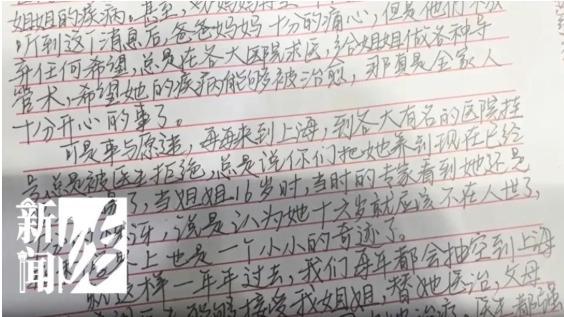 姐姐的疾病。甚至,
听到这个消息后,爸爸妈妈十分的痛心,但是他们不放
弃任何希望,总是在各大医院求医,给姐姐做各种手
管术,希望她的疾病能够被治愈,那真是全家人
十分开心的事了。
可是事与愿违,再再来到上海,到各大有名的医院挂
号总是被医生拒绝,总是说你们把她养到现在已经
了,当姐姐16岁时,当时的专家看到她还是
讶,说是认为她十六岁就应该不在人世了,
上也是一个小小的奇迹了。
就这样一年年过去,我们每年都会抽空到上海
接受我姐姐,替她医治,父母
治疗,医生都强
新闻坊